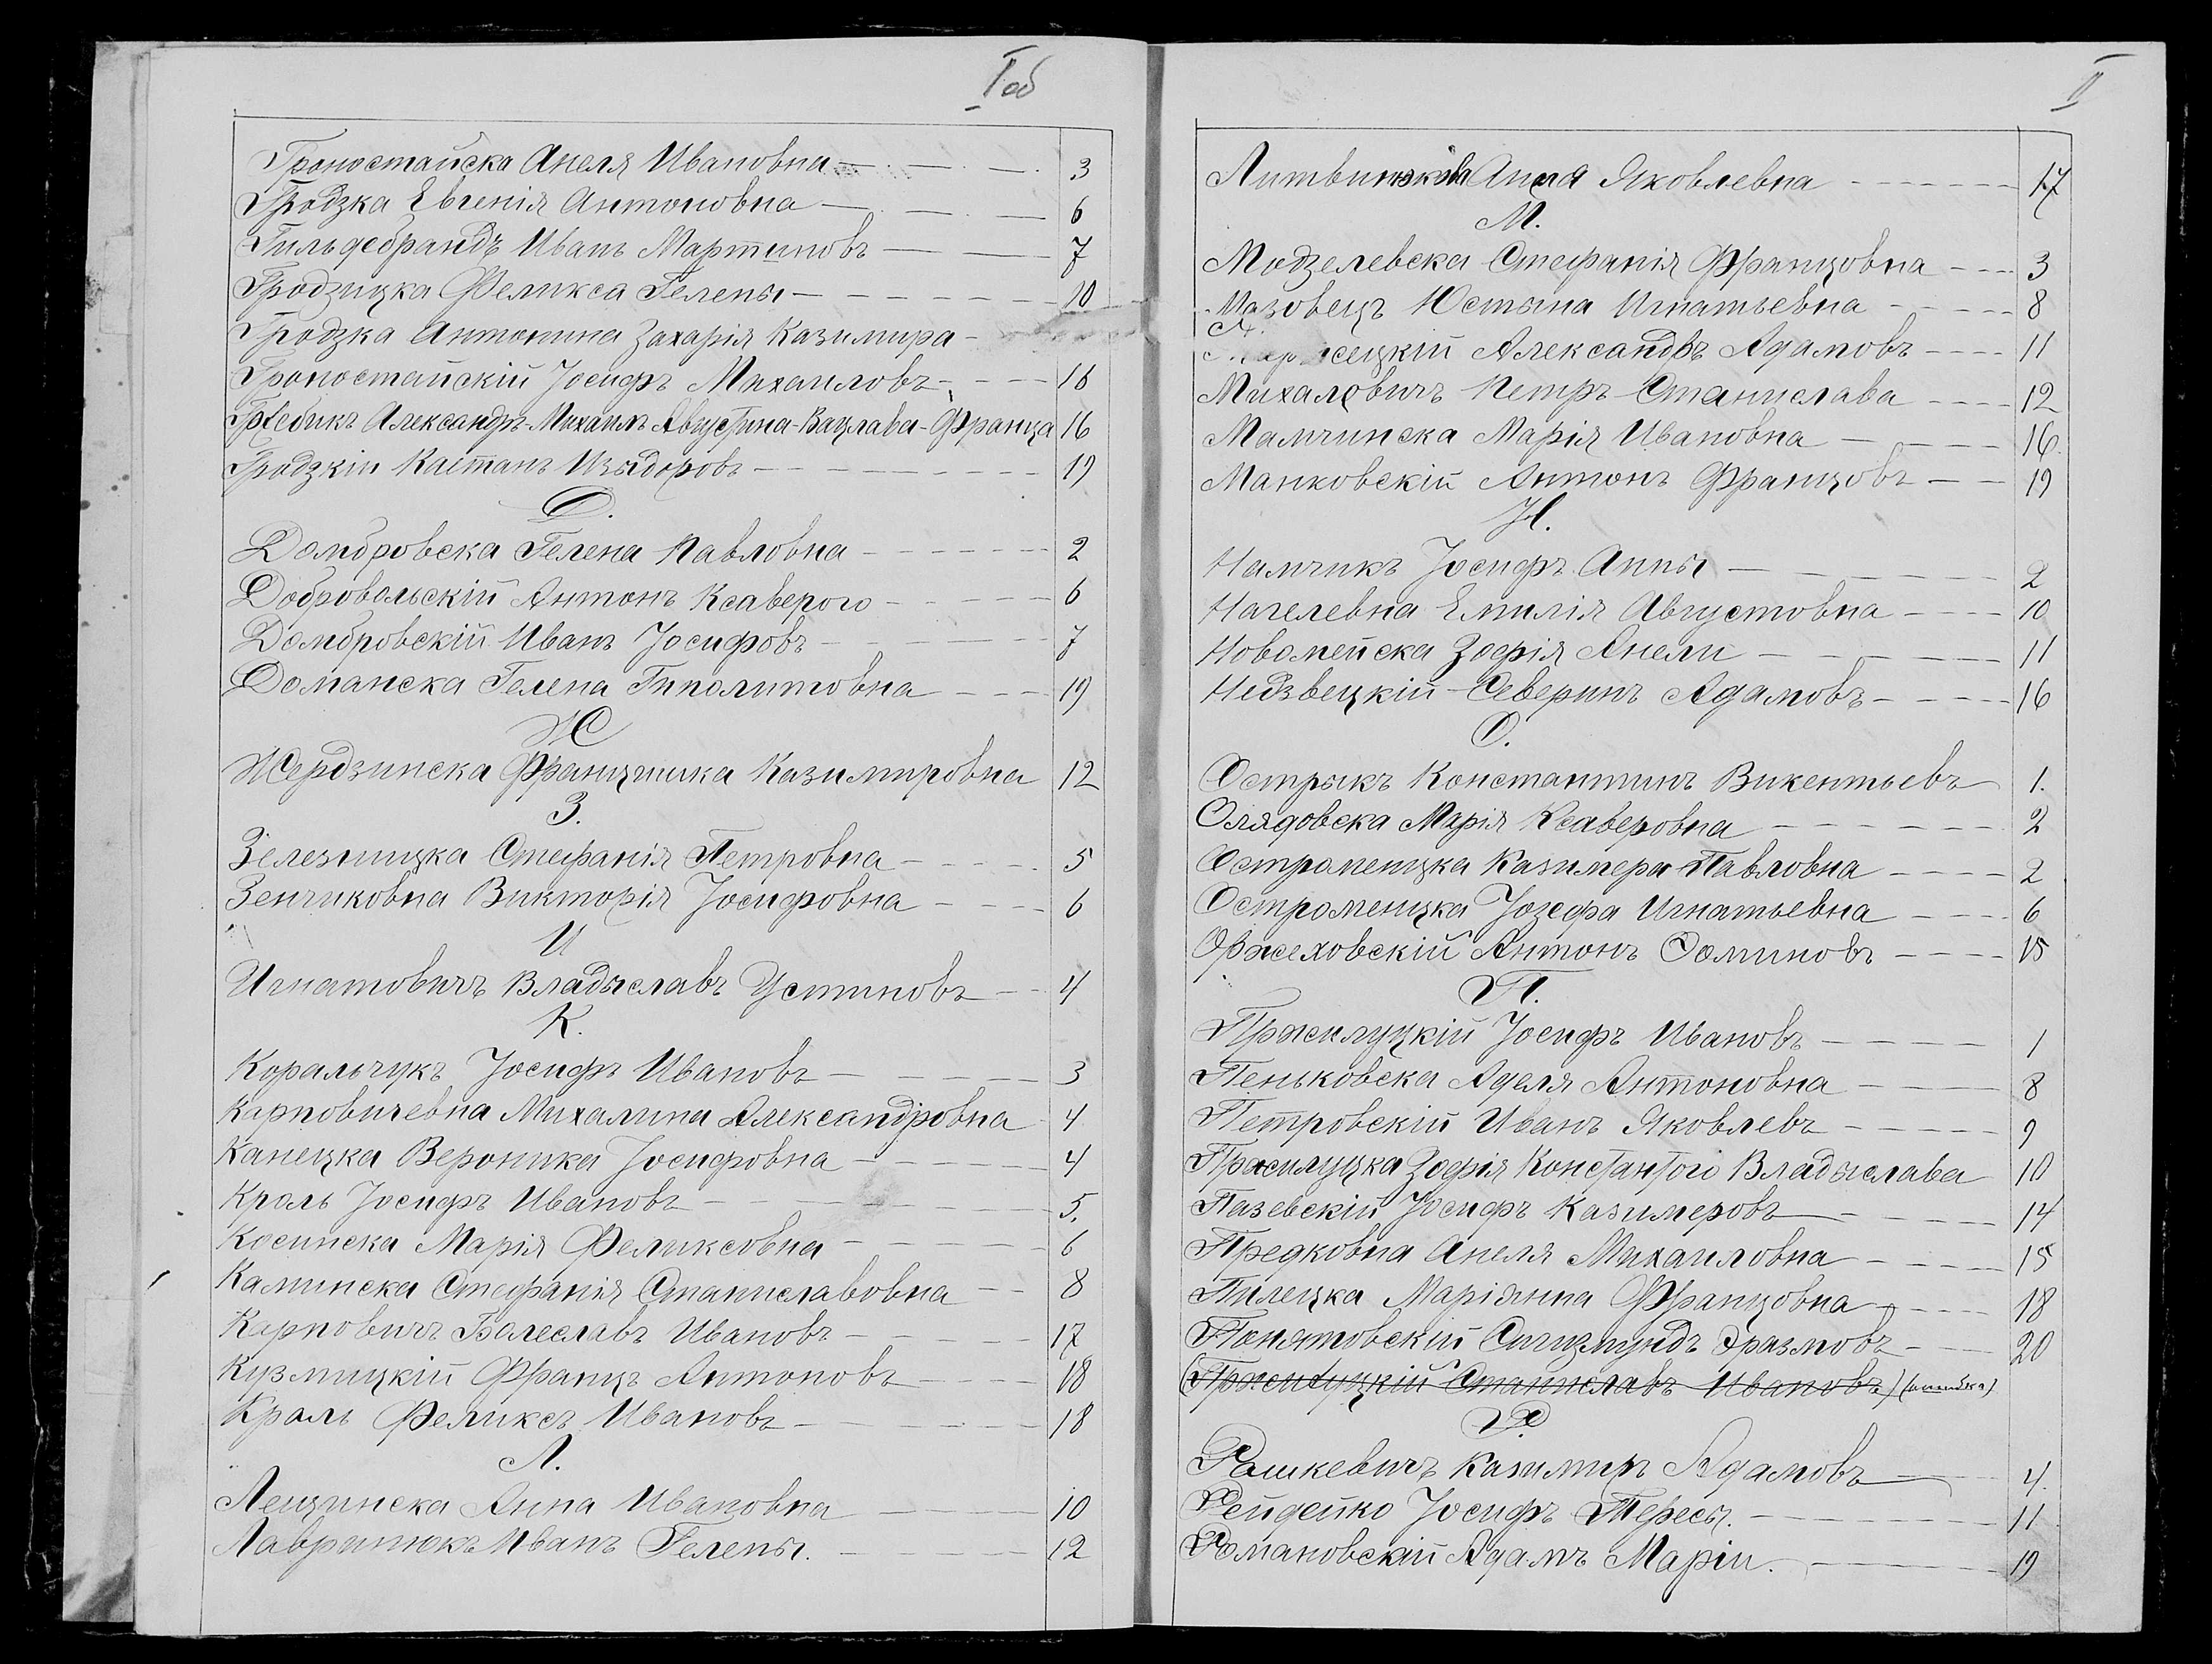 I об
Гроностайска Анеля Ивановна 3
Гродзка Евгенія Антоновна 6
Гильдебрандъ Иванъ Мартиновъ 7
Гродзицка Феликса Гелены 10
Гродзка Антонина Захарія Казимира
Гроностайскій Іосифъ Михаиловъ 16
Александръ-Михаилъ Августина-Вацлава-Франца 16
Гродзкій Каетанъ Изыдоровъ 19
Д.
Домбровска Гелена Павловна 2
Добровольскій Антонъ Ксаверого 6
Домбровскій Иванъ Іосифовъ 7
Доманска Гелена Гипполитовна 19
Ж
Жердзинска Францишка Казимировна 12
З.
Зелезницка Стефанія Петровна 5
Зенчиковна Викторія Іосифовна 6
И
Игнатовичъ Владыславъ Устиновъ 4
К.
Коральчукъ Іосифъ Ивановъ 3
Карповичевна Михалина Александровна 4
Канецка Вероника Іосифовна 4
Кроль Іосифъ Ивановъ 5.
Косинска Марія Феликсовна 6
Каминска Стефанія Станиславовна 8
Карповичъ Болеславъ Ивановъ 17
Кузмицкій Францъ Антоновъ 18
Кроль Феликсъ Ивановъ 18
Л.
Лещинска Анна Ивановна 10
Лавринюкъ Иванъ Гелены. 12
II
Анна Яковлевна 17
М.
Модзелевска Стефанія Францовна 3
Мазовецъ Юстына Игнатьевна 8
Александръ Адамовъ 11
Михаловичъ Петръ Станислава 12
Мамчинска Марія Ивановна 16.
Манковскій Антонъ Францовъ 19
Н.
Намчикъ Іосифъ Анны 2
Нагелевна Емилія Августовна 10
Новомейска Зофія Анели 11
Недзвецкій Северинъ Адамовъ 16
О.
Острыкъ Константинъ Викентьевъ 1.
Олядовска Марія Ксаверовна 2
Остроменцка Казимера Павловна 2
Остроменцка Іозефа Игнатьевна 6
Оржеховскій Антонъ Доминовъ 15
П.
Пржилуцкій Іосифъ Ивановъ 1
Пеньковска Аделя Антоновна 8
Петровскій Иванъ Яковлевъ 9
Пржилуцка Зофія Константого Владыслава 10
Пазевскій Іосифъ Казимеровъ 14
Предковна Анеля Михаиловна 15
Пилецка Маріянна Францовна 18
Понятовскій Сигизмундъ Эразмовъ 20
(Пржилуцкій Станиславъ Ивановъ) (ошибка)
Р.
Рашкевичъ Казимиръ Адамовъ 4.
Рейдейко Іосифъ Тересы. 11
Романовскій Адамъ Маріи. 19